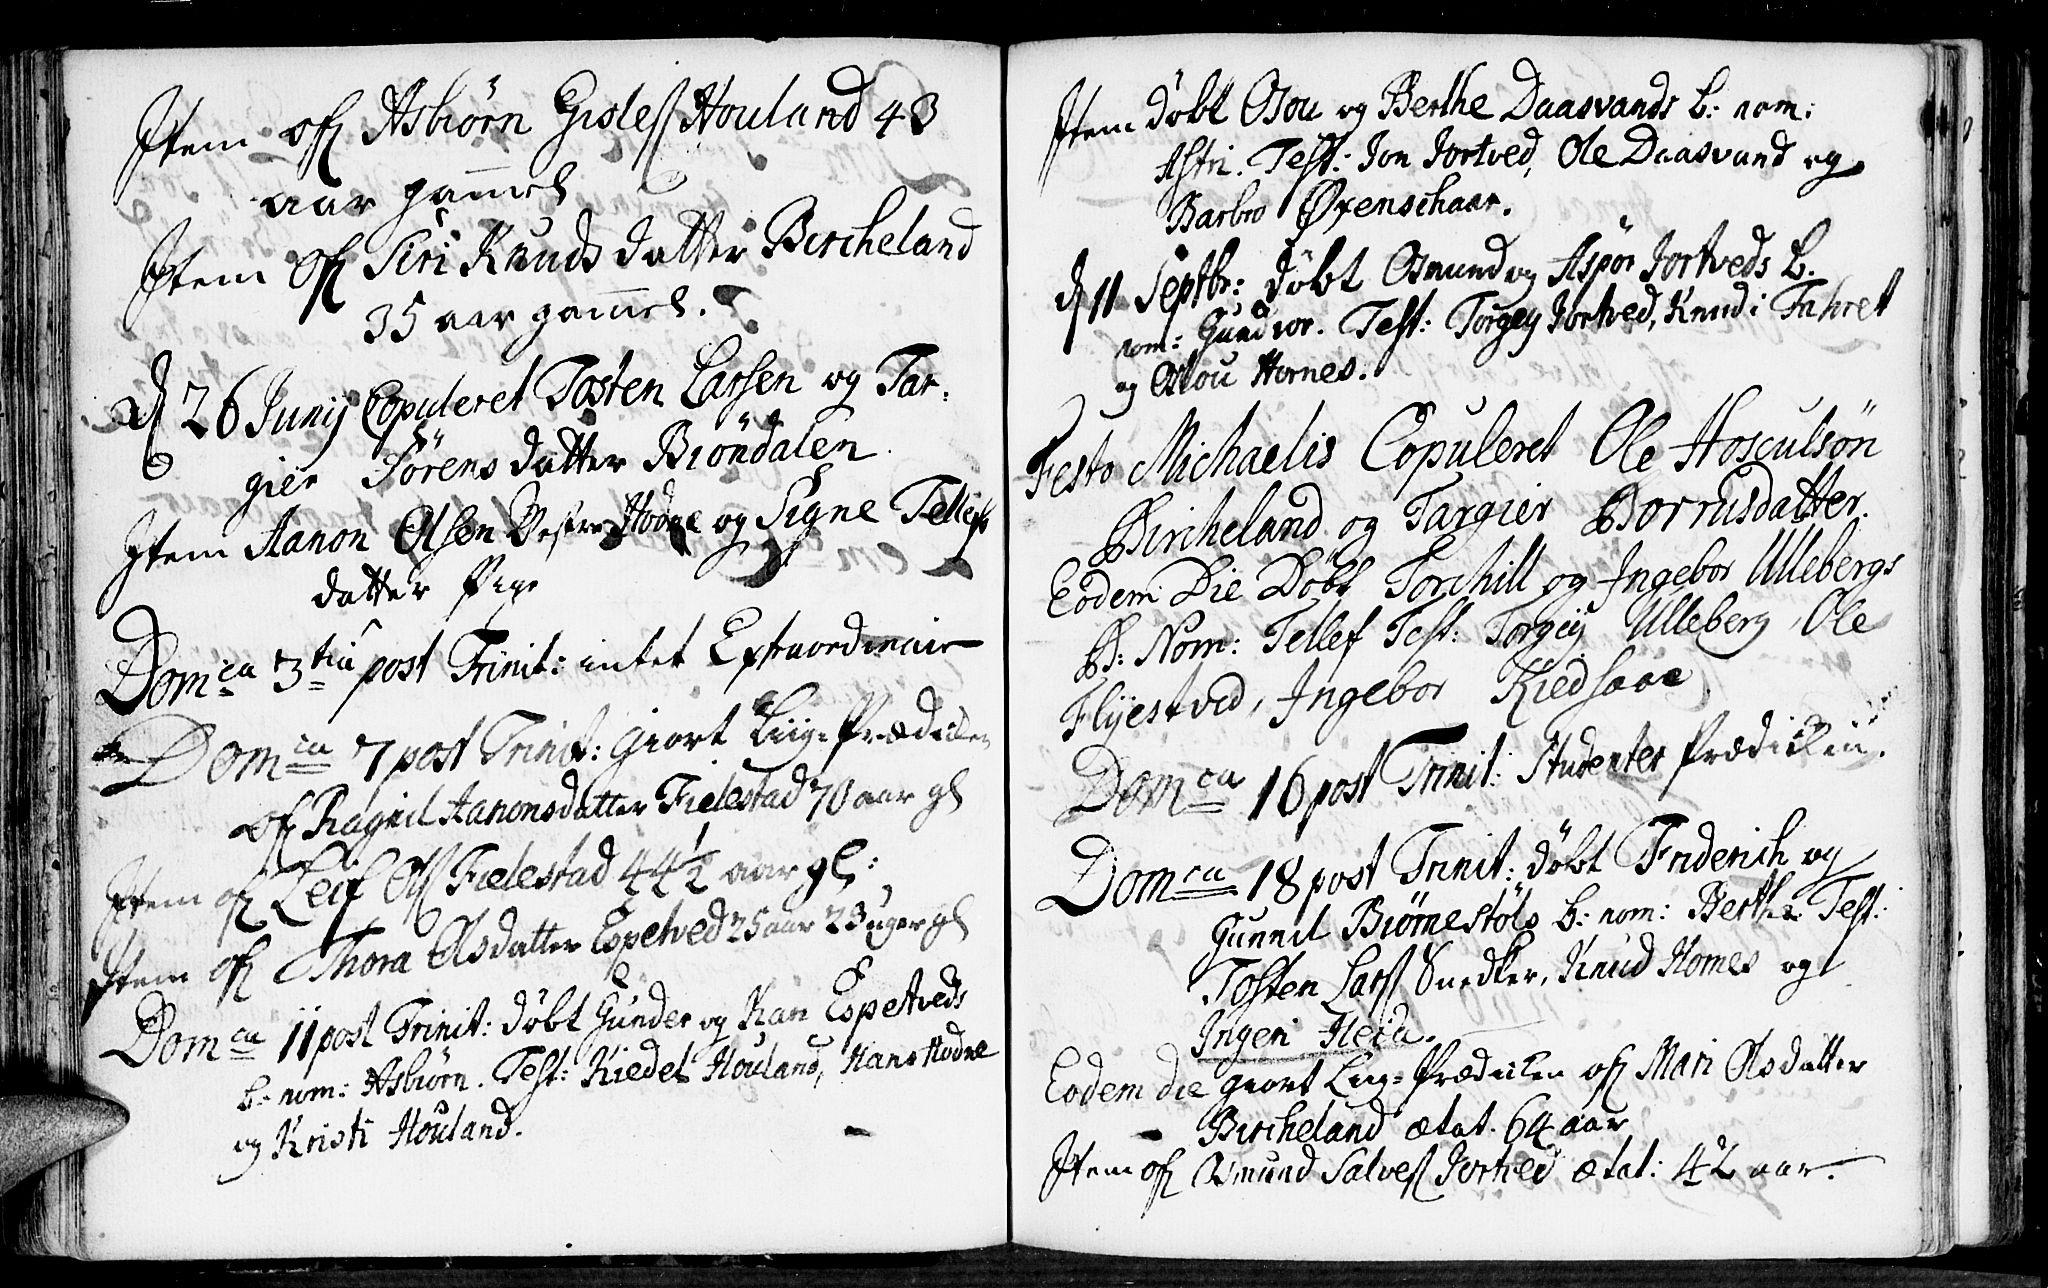 Item ofr Asbiörn Gisless Houland 43
aar gammel
Item ofr Siri Knuds datter Bircheland
35 aar gammel.
d 26 Junij Copuleret Tosten Larsen og Tar-
gier Sörens datter Biöndalen.
Item Aanon Olsen Vestre Hodne og Signe Tellefs
datter Pige
Domca 3tia post Trinit: intet Extraordinair
Domca 7 post Trinit: giort Liig-Prædiken
ofr Ragnil Aanonsdatter Fielestad 70 aar gl
Item ofr Leif Olss Fielestad 44½ aar gl:
Item ofr Thora Olsdatter Espetved 25 aar 23 uger gl
Domca 11 post Trinit: döbt Gunder og Kari Espetveds
b: nom: Asbiörn. Test: Kiedel Houland, Hans Hodne
og Kristi Houland.
Item döbt Osou og Berthe Daasvands b: nom:
Astri. Test: Jon Jortved, Ole Daasvand og
Barbro Øxenschaar.
d 11 Septbr: döbt Osmund og Aspor Jortveds b.
nom: Gundvor. Test: Torgey Jortved, Knud i Fahret
og Osou Hornes.
Festo Michaelis Copuleret Ole Hosculsön
Bircheland og Targier Borrusdatter.
Eodem Die Döbt Torchill og Ingebor Ullebergs
B: Nom: Tellef Test: Torgey Ulleberg, Ole
Flijestved, Ingebor Kiedsaae
Domca 16 post Trinit: Studenter Prædiken.
Domca 18 post Trinit: döbt Friderich og
Gunnil Biörnestöls b: nom: Berthe Test:
Tosten Larss Snedker, Knud Homes og
Ingeri Heia.
Eodem die giort Liig-Prædiken ofr Mari Olsdatter
Bircheland ætat. 64 aar
Item ofr Osmund Salvess Jortved ætat: 42 aar.